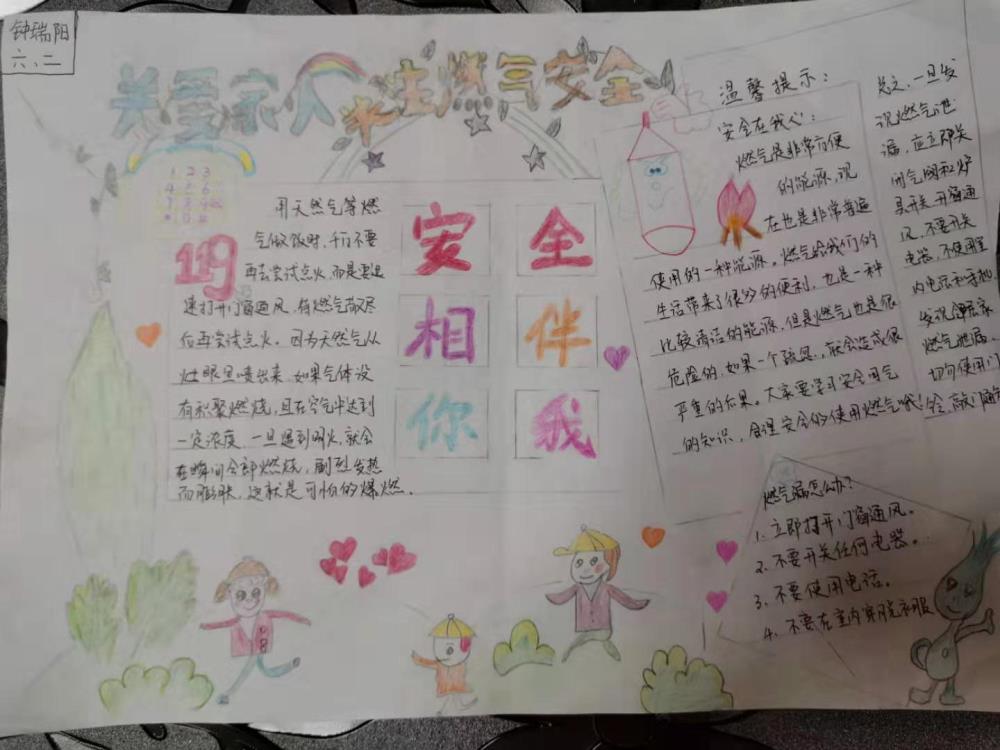 钟瑞阳
六、二
关爱家人 关注燃气安全
1 2 3
4 5 6
7 8 9
* 0 #
119
用天然气等燃
气做饭时,千万不要
再去尝试点火,而是要迅
速打开门窗通风,待燃气散尽
后再尝试点火。因为天然气从
灶眼里喷出来,如果气体没
有积聚燃烧,且在空气中达到
一定浓度,一旦遇到明火,就会
在瞬间全部燃烧,剧烈发热
而膨胀,这就是可怕的爆燃。
安全
相伴
你我
温馨提示:
安全在我心:
燃气是非常方便
的能源,现
在也是非常普遍
使用的一种能源。燃气给我们的
生活带来了很多的便利,也是一种
比较清洁的能源,但是燃气也是很
危险的,如果一个疏忽,就会造成很
严重的后果。大家要学习安全用气
的知识,合理安全的使用燃气哦!
总之,一旦发
现燃气泄
漏,应立即关
闭气阀和炉
具开关,开窗通
风,不要开关
电器,不使用室
内电话和手机
发现邻居家
燃气泄漏,
切勿使用门
铃,敲门通知
燃气漏怎么办?
1. 立即打开门窗通风。
2. 不要开关任何电器。
3. 不要使用电话。
4. 不要在室内穿脱衣服